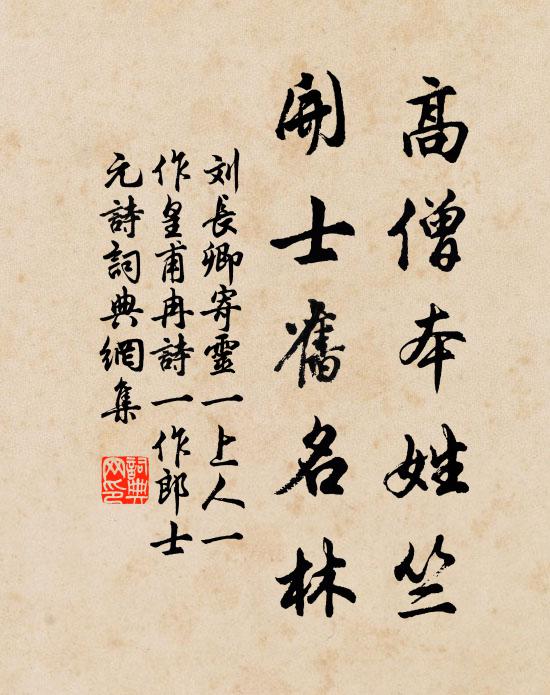 高僧本姓竺
開士舊名林
刘長卿寄靈一上人一
作皇甫冉詩一作郎士
元詩詞典網集
詞典
网印